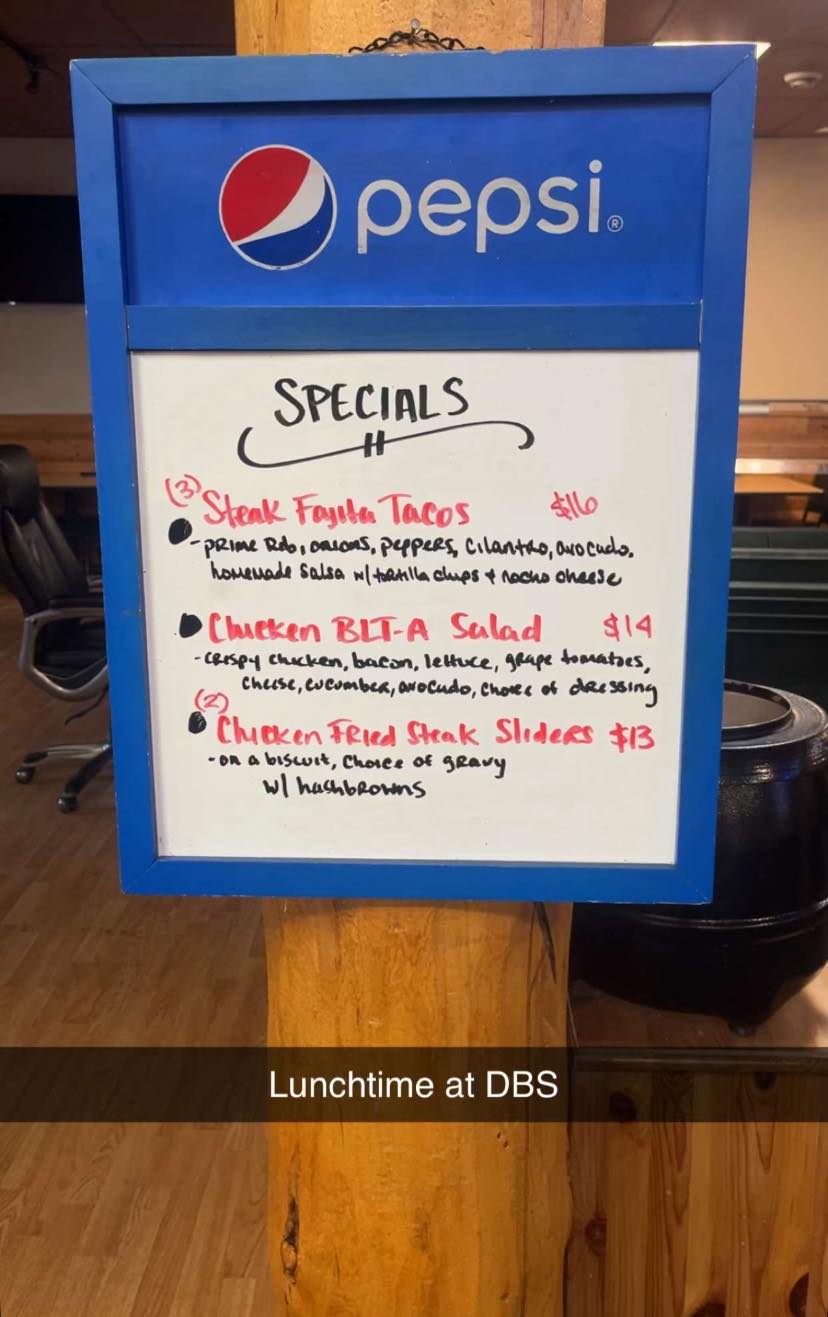 pepsi®
SPECIALS
(3) Steak Fajita Tacos $16
-prime Rib, onions, peppers, cilantro, avocado,
homemade salsa w/ tortilla chips + nacho cheese
Chicken BLT-A Salad $14
-crispy chicken, bacon, lettuce, grape tomatoes,
cheese, cucumber, avocado, choice of dressing
(2)
Chicken Fried Steak Sliders $13
-on a biscuit, choice of gravy
w/ hashbrowns
Lunchtime at DBS